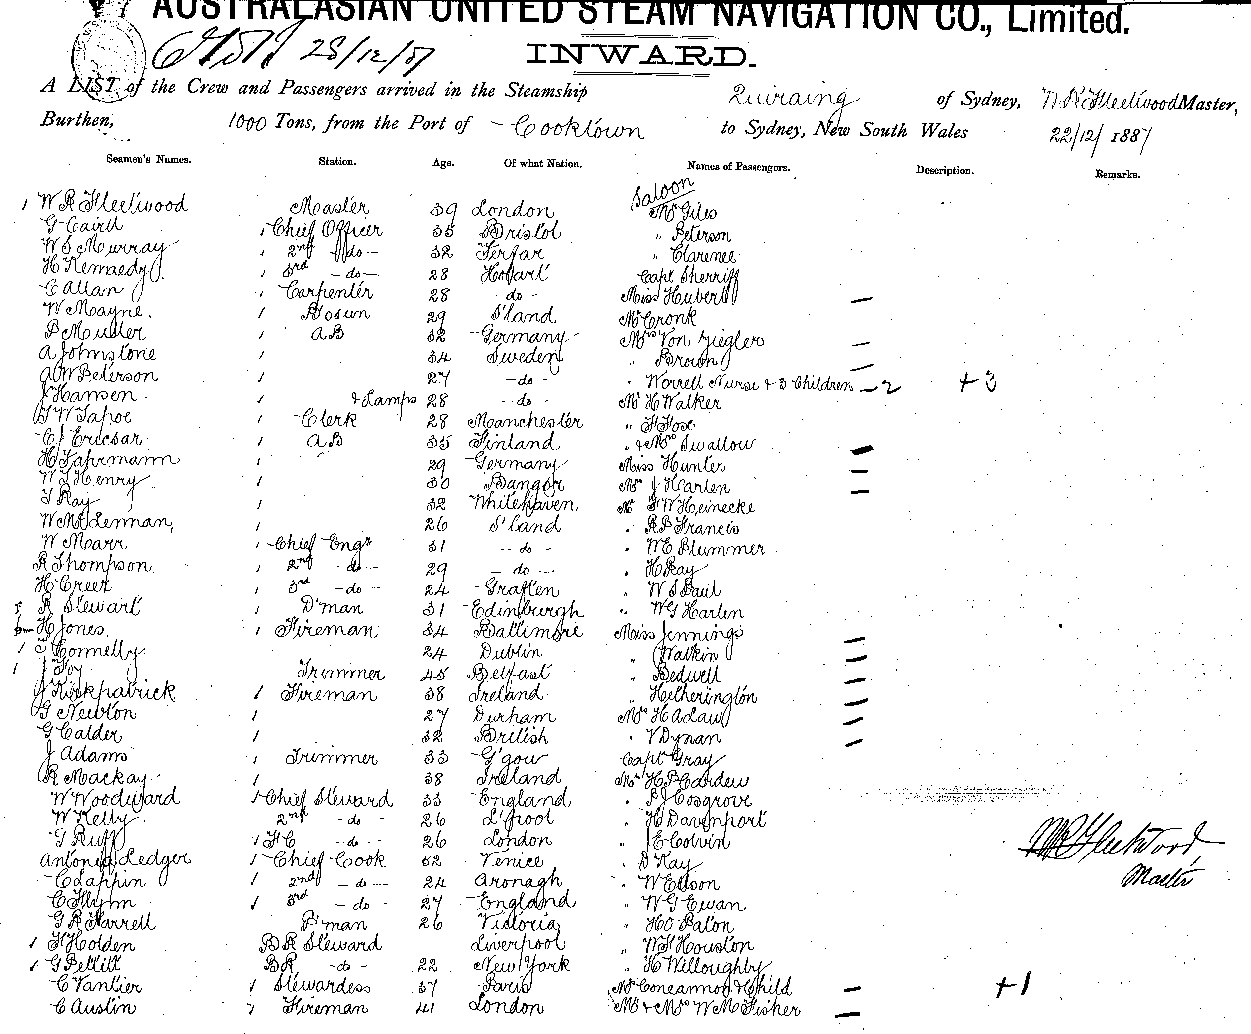 AUSTRALASIAN UNITED STEAM NAVIGATION CO., Limited.
28/12/87
INWARD.
A LIST of the Crew and Passengers arrived in the Steamship Quiraing of Sydney, W R Fleetwood Master,
Burthen, 1000 Tons, from the Port of Cooktown to Sydney, New South Wales 22/12/1887
Seamen's Names. Station. Age. Of what Nation. Names of Passengers. Description. Remarks.
Saloon
1 W R Fleetwood Master 39 London Mr Giles
G Caird 1 Chief Officer 35 Bristol " Peterson
W S Murray 1 2nd - do - 32 Forfar " Clarence
H Kennedy 1 3rd - do - 28 Hobart Capt Sherriff
C Allan 1 Carpenter 28 - do - Miss Hubert —
W Mayne. 1 Bosun 29 S'land Mr Cronk
P Muller 1 AB 32 Germany Mrs Von Ziegler —
A Johnstone 1 34 Sweden " Brown —
A W Peterson 1 27 - do - " Worrell Nurse & 3 Children — 2 + 3
J Hansen 1 & Lamps 28 - do - Mr H Walker
G W Tapoe 1 Clerk 28 Manchester " F Fox
C J Ericsar 1 AB 35 Finland " & Mrs Swallow —
H Fahrmann 1 29 Germany Miss Hunter —
W J Henry 1 30 Bangor Mrs J Harten —
T Ray 1 32 Whitehaven Mr F W Heinecke
W McLennan, 1 26 S'land " R B Francis
W Marr 1 Chief Engr 31 - do - " W E Plummer
R Thompson 1 2nd - do - 29 - do - " H Ray
H Creer 1 3rd - do - 24 Graften " W S Paul
R Stewart 1 D'man 31 Edinburgh " W G Harten
H Jones 1 Fireman 34 Baltimore Miss Jennings —
1 T Connelly 24 Dublin " Watkin —
1 J Foy Trimmer 45 Belfast " Bedwell —
J Kirkpatrick 1 Fireman 38 Ireland " Hetherington —
G Newton 1 27 Durham Mrs H Adaw —
G Calder 1 32 British " V Dynan —
J Adams 1 Trimmer 33 G'gow Capt Gray
R Mackay 1 38 Ireland Mr H P Garden
W Woodward 1 Chief Steward 33 England " P J Cosgrove
W Kelly 1 2nd - do - 26 L'pool " H Davenport
G Ruff 1 FC - do - 26 London " J E Colvin
Antonia Ledger 1 Chief Cook 52 Venice " D Kay
C Lappin 1 2nd - do - 24 Aronagh " W Ellson
C Flynn 1 3rd - do - 27 England " W G Ewan
G R Farrell P'man 26 Victoria " H O Paton
1 F Holden B R Steward Liverpool " W F Houston
1 G Pettitt BR - do - 22 New York " H Willoughby
C Vantier 1 Stewardess 37 Paris Mrs Coneannon & Child — + 1
C Austin 1 Fireman 41 London Mr & Mrs W M Fisher —
W R Fleetwood
Master